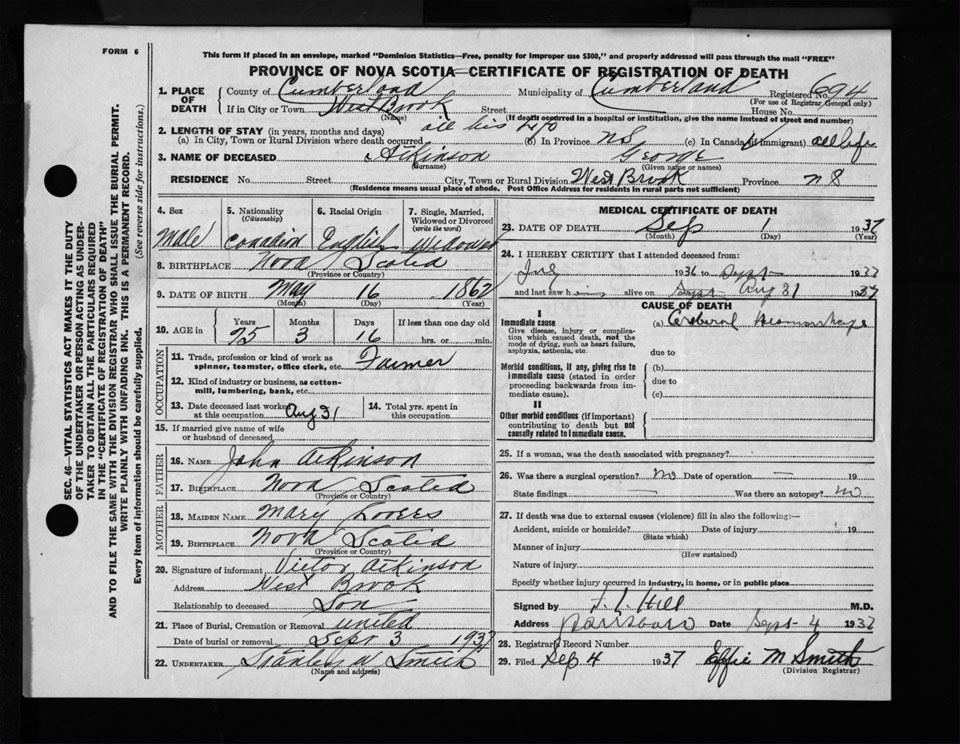 FORM 6
This form if placed in an envelope, marked "Dominion Statistics—Free, penalty for improper use $300," and properly addressed will pass through the mail "FREE"
PROVINCE OF NOVA SCOTIA—CERTIFICATE OF REGISTRATION OF DEATH
SEC. 46—VITAL STATISTICS ACT MAKES IT THE DUTY
OF THE UNDERTAKER OR PERSON ACTING AS UNDER-
TAKER TO OBTAIN ALL THE PARTICULARS REQUIRED
IN THE "CERTIFICATE OF REGISTRATION OF DEATH"
AND TO FILE THE SAME WITH THE DIVISION REGISTRAR WHO SHALL ISSUE THE BURIAL PERMIT.
WRITE PLAINLY WITH UNFADING INK. THIS IS A PERMANENT RECORD.
Every item of information should be carefully supplied. (See reverse side for instructions.)
1. PLACE OF DEATH
County of Cumberland Municipality of Cumberland Registered No. 694
(For use of Registrar General only)
If in City or Town West Brook Street House No.
(Name) (If death occurred in a hospital or institution, give the name instead of street and number)
2. LENGTH OF STAY (in years, months and days)
(a) In City, Town or Rural Division where death occurred all his life (b) In Province NS (c) In Canada (if immigrant) all life
3. NAME OF DECEASED Atkinson George
(Surname) (Given name or names)
RESIDENCE No. Street City, Town or Rural Division West Brook Province NS
(Residence means usual place of abode. Post Office Address for residents in rural parts not sufficient)
4. Sex Male
5. Nationality (Citizenship) Canadian
6. Racial Origin English
7. Single, Married, Widowed or Divorced (write the word) Widowed
8. BIRTHPLACE Nova Scotia
(Province or Country)
9. DATE OF BIRTH May 16 1862
(Month) (Day) (Year)
10. AGE in Years Months Days If less than one day old
75 3 16 hrs. or min.
OCCUPATION
11. Trade, profession or kind of work as spinner, teamster, office clerk, etc. Farmer
12. Kind of industry or business, as cotton-mill, lumbering, bank, etc.
13. Date deceased last worked at this occupation Aug 31
14. Total yrs. spent in this occupation
15. If married give name of wife or husband of deceased
FATHER
16. NAME John Atkinson
17. BIRTHPLACE Nova Scotia
(Province or Country)
MOTHER
18. MAIDEN NAME Mary
19. BIRTHPLACE Nova Scotia
(Province or Country)
20. Signature of informant Victor Atkinson
Address West Brook
Relationship to deceased Son
21. Place of Burial, Cremation or Removal united
Date of burial or removal Sept 3 1937
22. UNDERTAKER Stanley W Smith
(Name and address)
MEDICAL CERTIFICATE OF DEATH
23. DATE OF DEATH Sep 1 1937
(Month) (Day) (Year)
24. I HEREBY CERTIFY that I attended deceased from:
1936 to Sept 1937
and last saw him alive on Sept Aug 31 1937
CAUSE OF DEATH
I
Immediate cause (a) Cerebral Hemorrhage
Give disease, injury or complication which caused death, not the mode of dying, such as heart failure, asphyxia, asthenia, etc.
due to
Morbid conditions, if any, giving rise to immediate cause (stated in order proceeding backwards from immediate cause).
(b)
due to
(c)
II
Other morbid conditions (if important) contributing to death but not causally related to immediate cause.
25. If a woman, was the death associated with pregnancy?
26. Was there a surgical operation? No Date of operation — 19
State findings — Was there an autopsy? no
27. If death was due to external causes (violence) fill in also the following:—
Accident, suicide or homicide? Date of injury 19
(State which)
Manner of injury
(How sustained)
Nature of injury
Specify whether injury occurred in industry, in home, or in public place
Signed by Hill M.D.
Address Parrsboro Date Sept 4 1937
28. Registrar's Record Number
29. Filed Sep 4 1937 Effie M Smith
(Division Registrar)